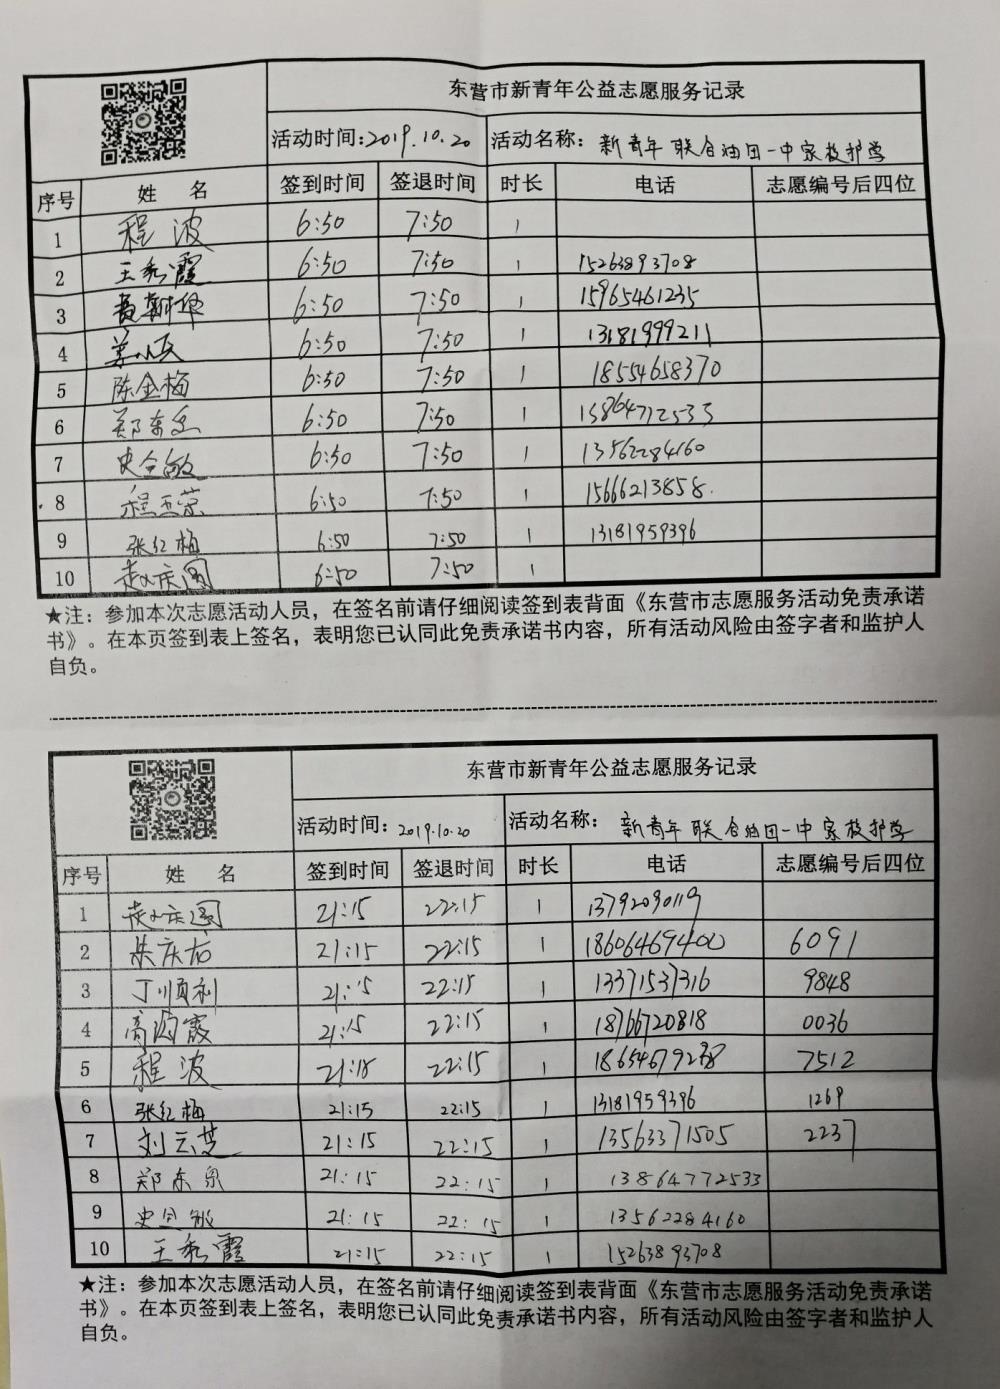 东营市新青年公益志愿服务记录
活动时间:2019.10.20 活动名称: 新青年联合油田一中家校护学
序号 姓 名 签到时间 签退时间 时长 电话 志愿编号后四位
1 程波 6:50 7:50 1
2 王秀霞 6:50 7:50 1 15263893708
3 6:50 7:50 1 15965461235
4 6:50 7:50 1 13181999211
5 陈金梅 6:50 7:50 1 18554658370
6 郑东 6:50 7:50 1
7 史会敏 6:50 7:50 1 13562284160
8 程玉荣 6:50 7:50 1 15666213858.
9 张红梅 6:50 7:50 1 13181959396
10 6:50 7:50 1
★注: 参加本次志愿活动人员，在签名前请仔细阅读签到表背面《东营市志愿服务活动免责承诺
书》。在本页签到表上签名，表明您已认同此免责承诺书内容，所有活动风险由签字者和监护人
自负。
东营市新青年公益志愿服务记录
活动时间: 2019.10.20 活动名称: 新青年联合油田一中家校护学
序号 姓 名 签到时间 签退时间 时长 电话 志愿编号后四位
1 21:15 22:15 1 13792090119
2 21:15 22:15 1 18606469400 6091
3 丁顺利 21:15 22:15 1 13371537316 9848
4 21:15 22:15 1 18766720818 0036
5 程波 21:15 22:15 1 7512
6 张红梅 21:15 22:15 1 13181959396 1269
7 刘云芝 21:15 22:15 1 13563371505 2237
8 郑东泉 21:15 22:15 1 13864772533
9 史会敏 21:15 22:15 1 13562284160
10 王秀霞 21:15 22:15 1 15263893708
★注: 参加本次志愿活动人员，在签名前请仔细阅读签到表背面《东营市志愿服务活动免责承诺
书》。在本页签到表上签名，表明您已认同此免责承诺书内容，所有活动风险由签字者和监护人
自负。